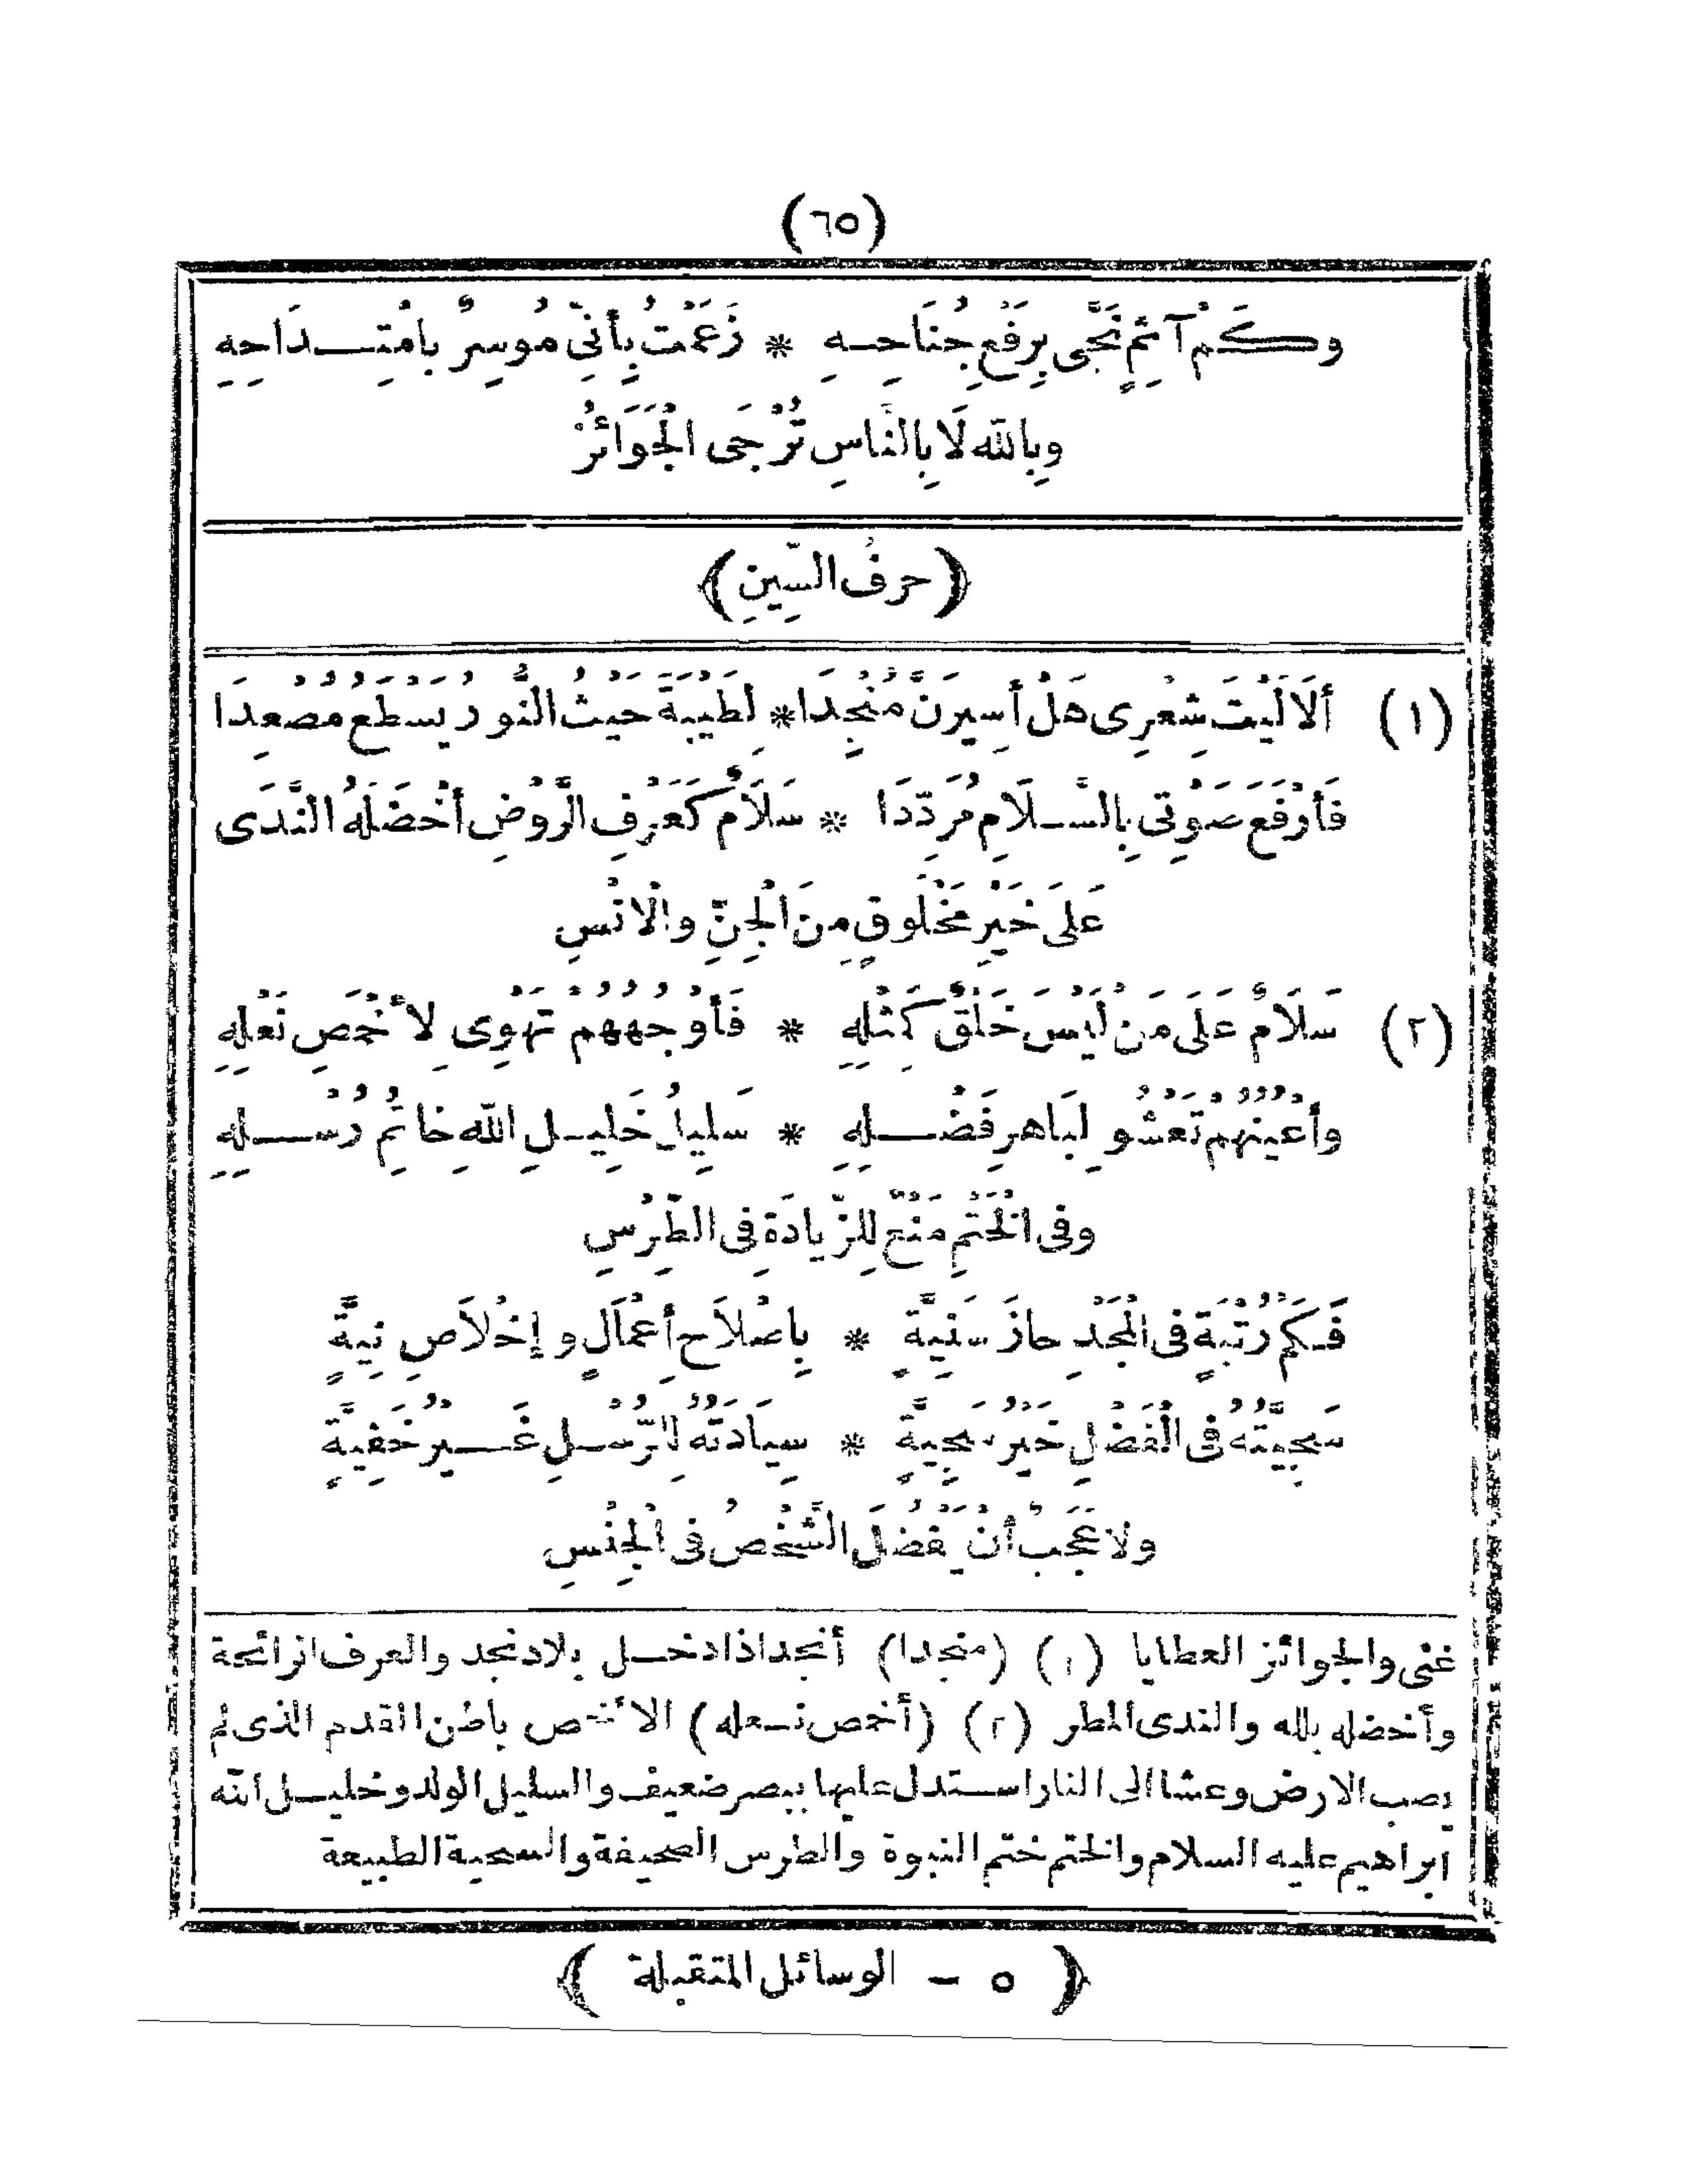 (٦٥)
وكَمْ آثِمٍ نَجَّى بِرَفْعِ جُنَاحِهِ * زَعَمْتُ بِأَنِّى مُوسِرٌ بامْتِدَاحِهِ
وبِاللهِ لَا بِالنَّاسِ تُرْجَى الْجَوَائزُ
(حرفُ السِّينِ)
(١) أَلَا لَيْتَ شِعْرِى هَلْ أَسِيرَنَّ مُنْجِدَا * لِطَيْبَةَ حَيْثُ النُّورُ يَسْطَعُ مُصْعِدَا
فَأَرْفَعَ صَوْتِى بِالسَّلَامِ مُرَدِّدَا * سَلَامٌ كَعَرْفِ الرَّوْضِ أَخْضَلَهُ النَّدَى
عَلَى خَيْرِ مَخْلُوقٍ مِنَ الْجِنِّ والْانْسِ
(٢) سَلَامٌ عَلَى مَنْ لَيْسَ خَلْقٌ كَمِثْلِهِ * فَأَوْجُهُهُمْ تَهْوِى لِأَخْمَصِ نَعْلِهِ
وأَعْيُنُهُمْ تَعْشُو لِبَاهِرِ فَضْلِهِ * سَلِيلُ خَلِيلِ اللهِ خاتِمُ رُسْلِهِ
وفى الْخَتْمِ مَنْعٌ لِلزِّيادَةِ فِى الطِّرْسِ
فَكَمْ رُتْبَةٍ فى الْمَجْدِ حازَ سَنِيَّةٍ * بِاصْلَاحِ أَعْمَالٍ وإخْلَاصِ نِيَّةٍ
سَجِيَّتُهُ فى الْفَضْلِ خَيْرُ سَجِيَّةٍ * سِيَادَتُهُ لِلرُّسْلِ غَيْرُ خَفِيَّةٍ
ولا عَجَبٌ أَنْ يَفْضُلَ الشَّخْصُ فى الْجِنْسِ
غنى والجوائز العطايا (١) (منجدا) أنجد اذا دخل بلاد نجد والعرف الرائحة
وأخضله بلله والندى المطر (٢) (أخمص نعله) الأخمص باطن القدم الذى لم
يصب الارض وعشا الى النار استدل عليها ببصر ضعيف والسليل الولد وخليل الله
ابراهيم عليه السلام والختم ختم النبوة والطرس الصحيفة والسجية الطبيعة
(٥ – الوسائل المتقبلة)